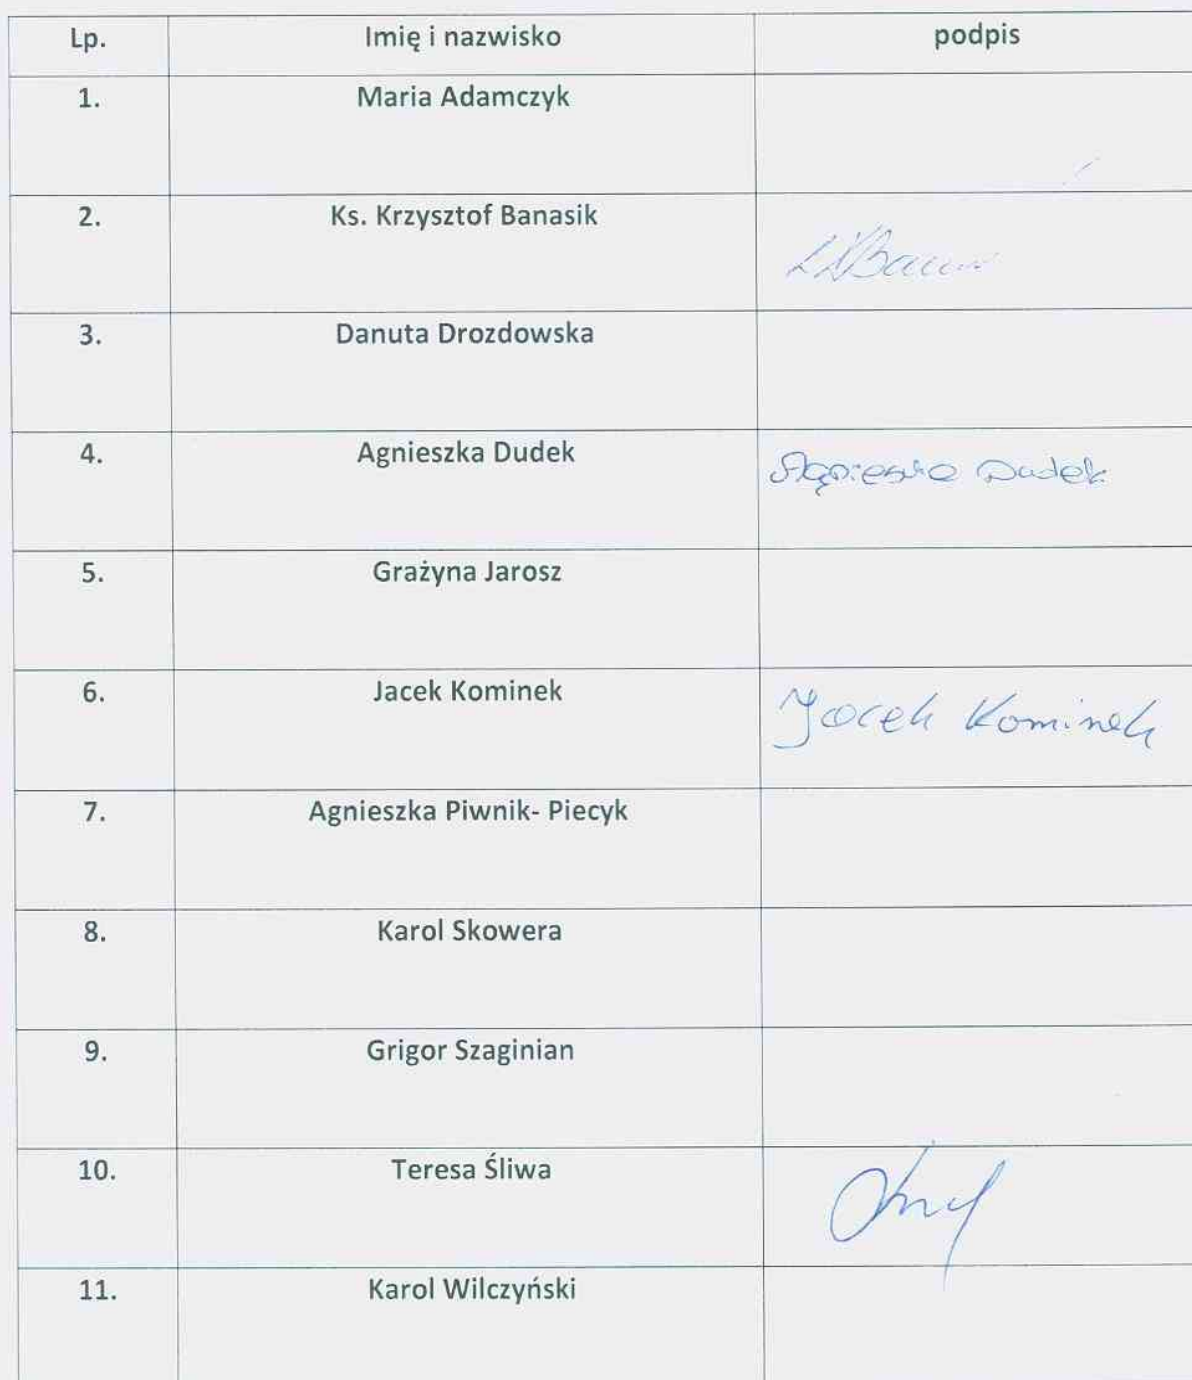 Lp. Imię i nazwisko podpis
1. Maria Adamczyk
2. Ks. Krzysztof Banasik
3. Danuta Drozdowska
4. Agnieszka Dudek Agnieszka Dudek
5. Grażyna Jarosz
6. Jacek Kominek Jacek Kominek
7. Agnieszka Piwnik- Piecyk
8. Karol Skowera
9. Grigor Szaginian
10. Teresa Śliwa
11. Karol Wilczyński